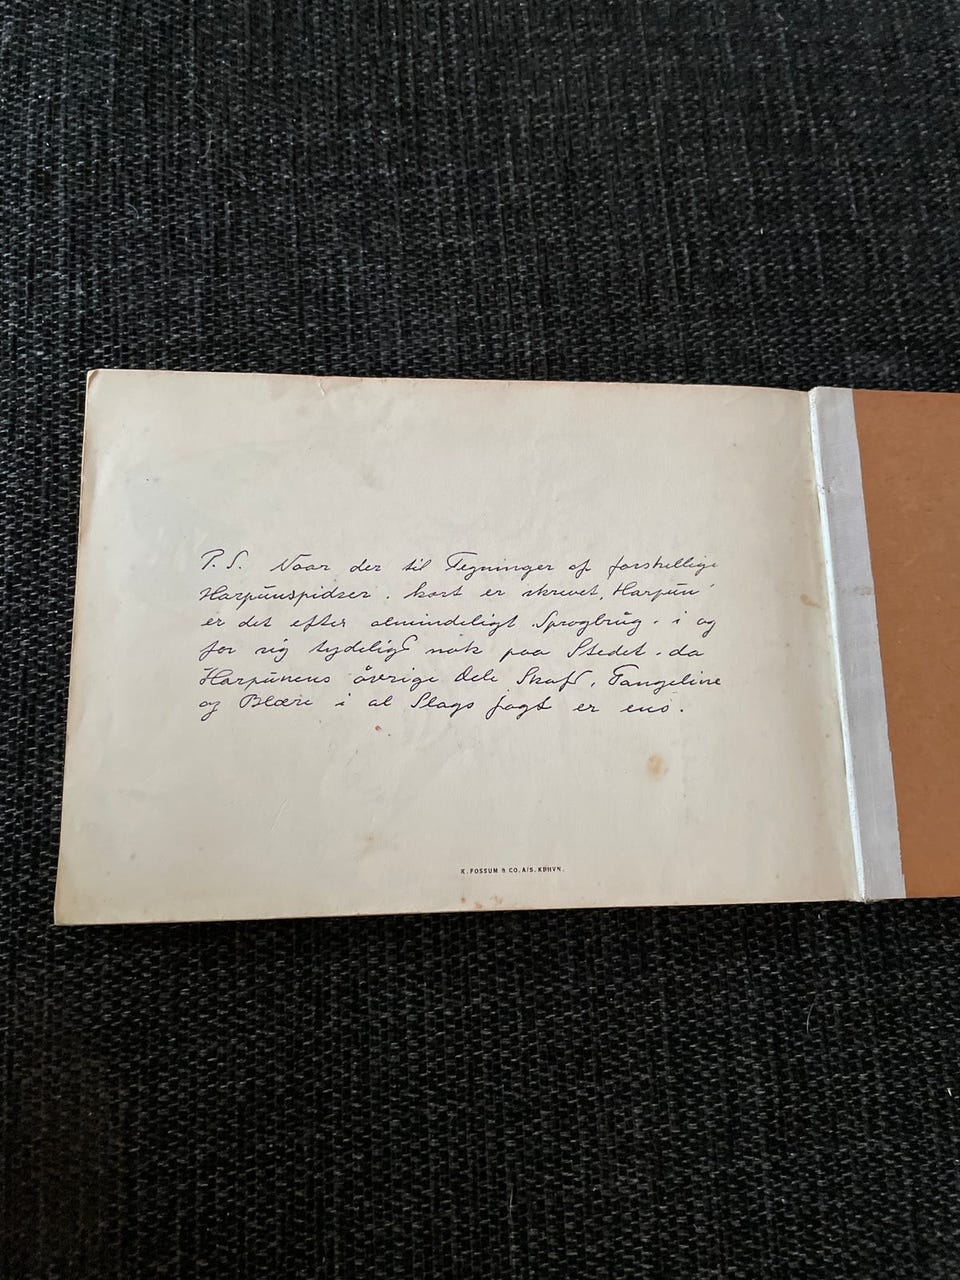 P. S. Naar der til Tegninger af forskellige
Harpunspidser, kort er skrevet, Harpun'
er det efter almindeligt Sprogbrug, i og
for sig tydeligt nok paa Stedet, da
Harpunens øvrige Dele Skaft, Fangeline
og Blære i al Slags Jagt er ens.
K. FOSSUM & CO. A/S. KBHVN.